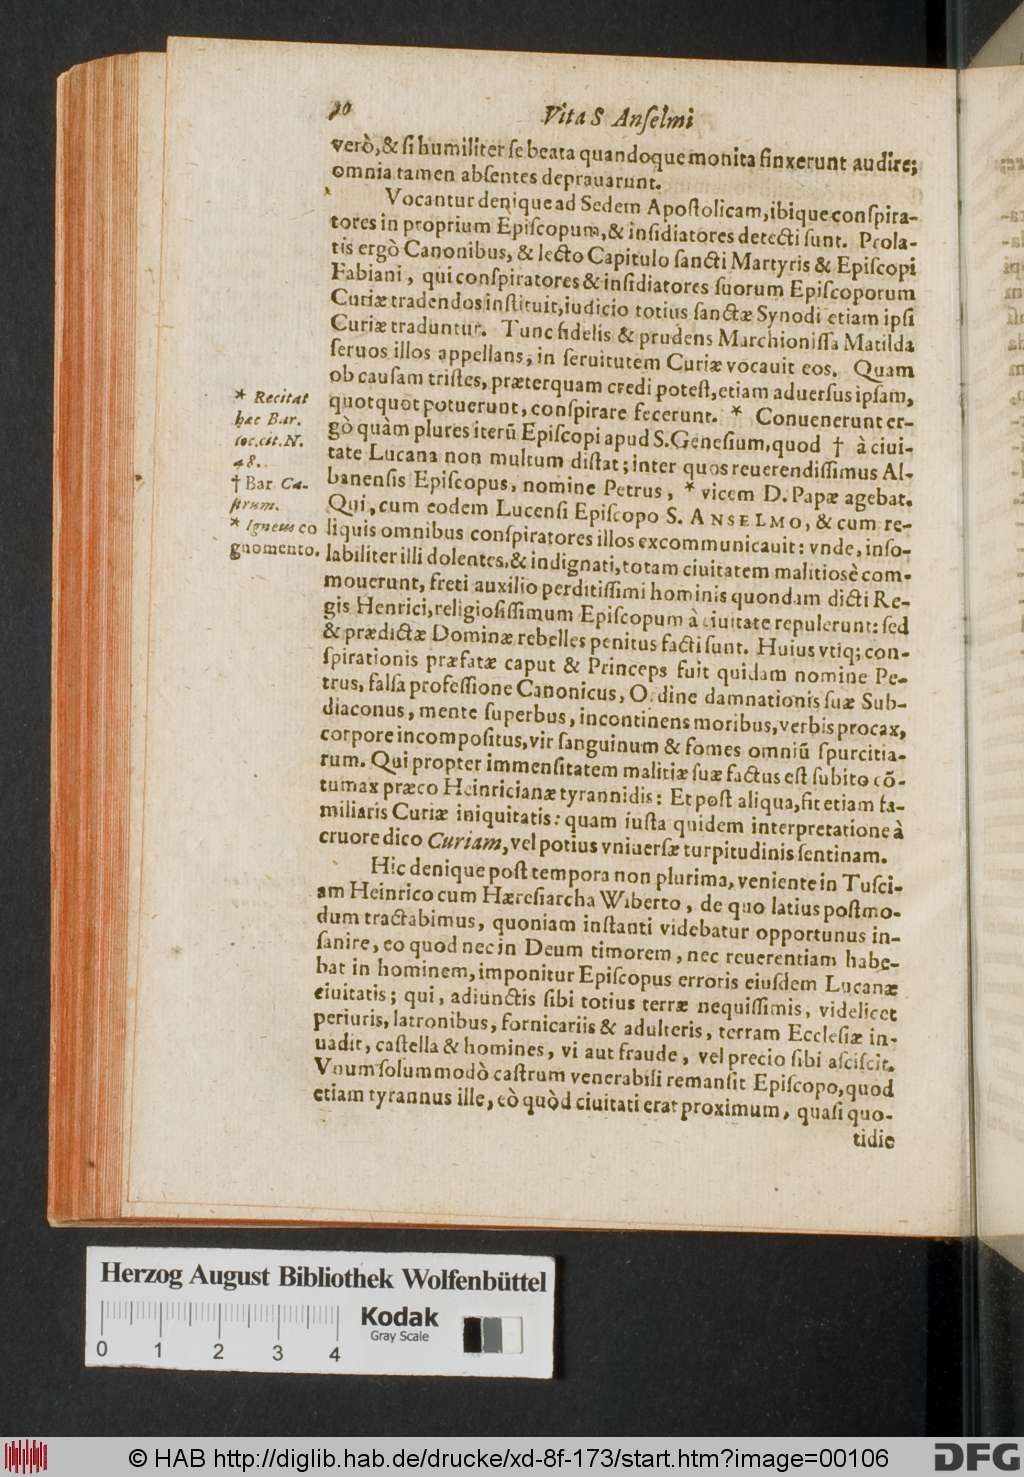 30 Vita S Anſelmi
verò, & ſi humiliter ſe beata quandoque monita finxerunt audire;
omnia tamen abſentes deprauarunt.
Vocantur denique ad Sedem Apoſtolicam, ibique conſpira-
tores in proprium Epiſcopum, & inſidiatores detecti ſunt. Prola-
tis ergò Canonibus, & lecto Capitulo ſancti Martyris & Epiſcopi
Fabiani, qui conſpiratores & inſidiatores ſuorum Epiſcoporum
Curiæ tradendos inſtituit, iudicio totius ſanctæ Synodi etiam ipſi
Curiæ traduntur. Tunc fidelis & prudens Marchioniſſa Matilda
ſeruos illos appellans, in ſeruitutem Curiæ vocauit eos. Quam
ob cauſam triſtes, præterquam credi poteſt, etiam aduerſus ipſam,
quotquot potuerunt, conſpirare fecerunt. * Conuenerunt er-
gò quàm plures iterū Epiſcopi apud S. Geneſium, quod † à ciui-
tate Lucana non multum diſtat; inter quos reuerendiſſimus Al-
banenſis Epiſcopus, nomine Petrus, * vicem D. Papæ agebat.
Qui, cum eodem Lucenſi Epiſcopo S. ANSELMO, & cum re-
liquis omnibus conſpiratores illos excommunicauit: vnde, inſo-
labiliter illi dolentes, & indignati, totam ciuitatem malitiosè com-
mouerunt, freti auxilio perditiſſimi hominis quondam dicti Re-
gis Henrici, religioſiſſimum Epiſcopum à ciuitate repulerunt: ſed
& prædictæ Dominæ rebelles penitus facti ſunt. Huius vtiq; con-
ſpirationis præfatæ caput & Princeps fuit quidam nomine Pe-
trus, falſa profeſſione Canonicus, Ordine damnationis ſuæ Sub-
diaconus, mente ſuperbus, incontinens moribus, verbis procax,
corpore incompoſitus, vir ſanguinum & fomes omniū ſpurcitia-
rum. Qui propter immenſitatem malitiæ ſuæ factus eſt ſubito cō-
tumax præco Heinricianæ tyrannidis: Et poſt aliqua, fit etiam fa-
miliaris Curiæ iniquitatis: quam iuſta quidem interpretatione à
cruore dico Curiam, vel potius vniuerſæ turpitudinis ſentinam.
Hic denique poſt tempora non plurima, veniente in Tuſci-
am Heinrico cum Hæreſiarcha Wiberto, de quo latius poſtmo-
dum tractabimus, quoniam inſtanti videbatur opportunus in-
ſanire, eo quod nec in Deum timorem, nec reuerentiam habe-
bat in hominem, imponitur Epiſcopus erroris eiuſdem Lucanæ
ciuitatis; qui, adiunctis ſibi totius terræ nequiſſimis, videlicet
periuris, latronibus, fornicariis & adulteris, terram Eccleſiæ in-
uadit, caſtella & homines, vi aut fraude, vel precio ſibi aſciſcit.
Vnum ſolummodò caſtrum venerabili remanſit Epiſcopo, quod
etiam tyrannus ille, eò quòd ciuitati erat proximum, quaſi quo-
tidie
* Recitat
hæc Bar.
loc. cit. N.
48.
† Bar Ca-
ſtrum.
* Igneus co
gnomento.
Herzog August Bibliothek Wolfenbüttel
Kodak
Gray Scale
0 1 2 3 4
© HAB http://diglib.hab.de/drucke/xd-8f-173/start.htm?image=00106
DFG